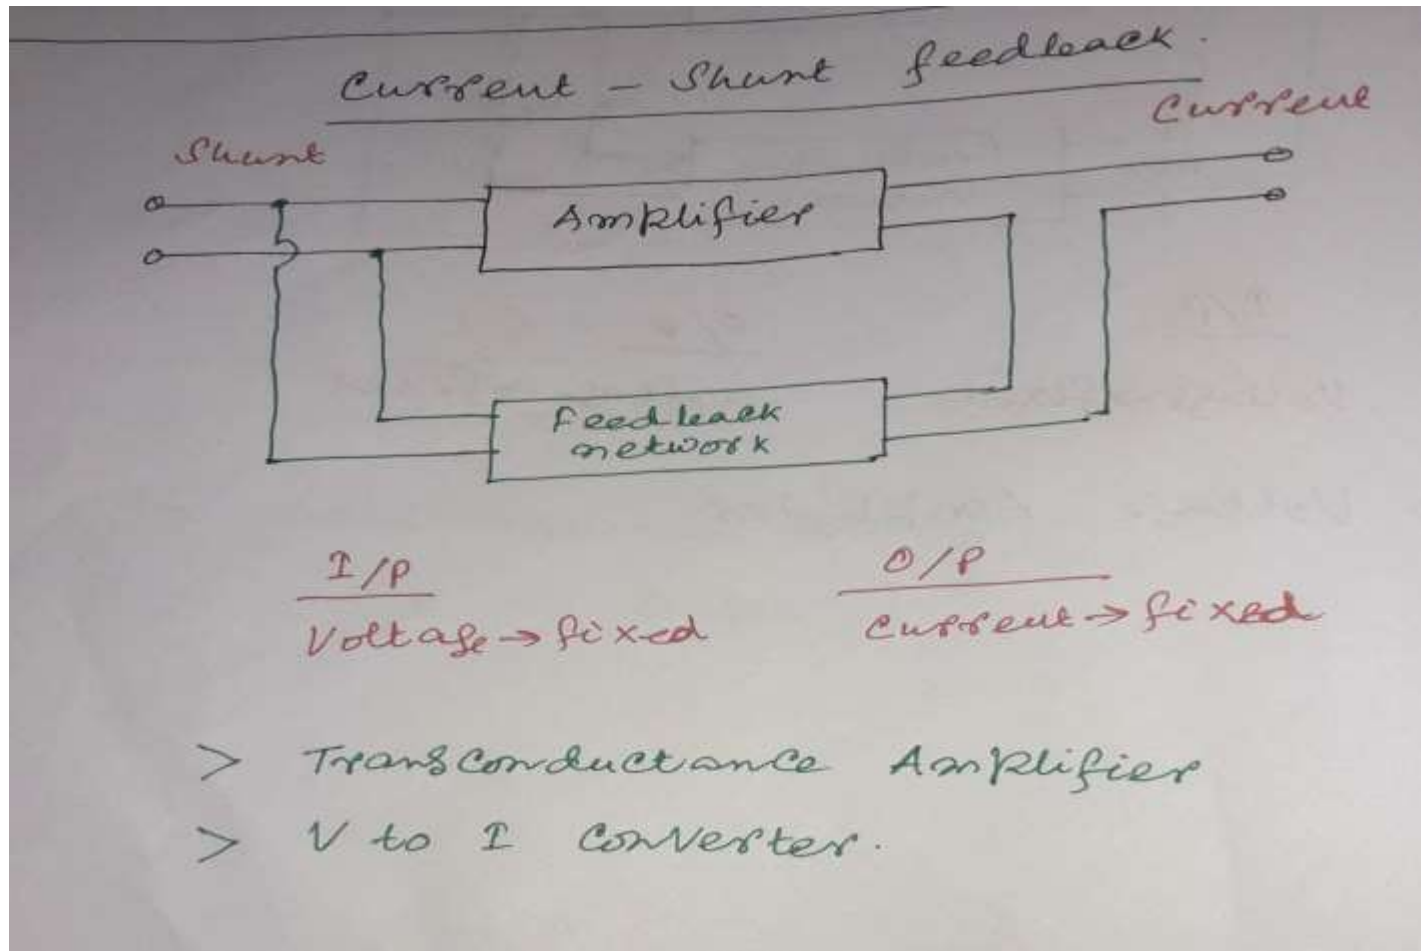 Current - Shunt feedback.
Current
Shunt
Amplifier
Feedback
network
I/P
O/P
Voltage → fixed
Current → fixed
> Transconductance Amplifier
> V to I Converter.